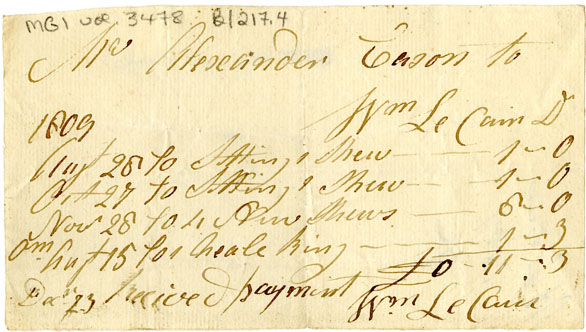 MG1 vol 3478 B/217.4
Mr Alexander Cason to
Wm Le Cain Dr
1809
Augt 28 to Setting 1 Shew — 1 - 0
Oct 27 to Setting 1 Shew — 1 - 0
Novr 28 to 4 New Shews — 8 - 0
omt Augt 15 for heale Ring — 1 - 3
£0 - 11 - 3
Decr 23 Received payment
Wm Le Cain